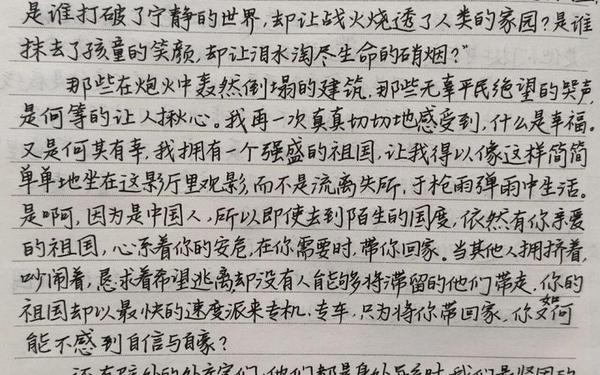 是谁打破了宁静的世界,却让战火烧透了人类的家园?是谁
抹去了孩童的笑颜,却让泪水淘尽生命的硝烟?”
那些在炮火中轰然倒塌的建筑,那些无辜平民绝望的哭声,
是何等的让人揪心。我再一次真真切切地感受到,什么是幸福。
又是何其有幸,我拥有一个强盛的祖国,让我得以像这样简简
单单地坐在这影厅里观影,而不是流离失所,于枪雨弹雨中生活。
是啊,因为是中国人,所以即使去到陌生的国度,依然有你亲爱
的祖国,心系着你的安危,在你需要时,带你回家。当其他人拥挤着,
吵闹着,恳求着希望逃离却没有人能够将滞留的他们带走,你的
祖国却以最快的速度派来专机、专车,只为将你带回家,你又如何
能不感到自信与自豪?